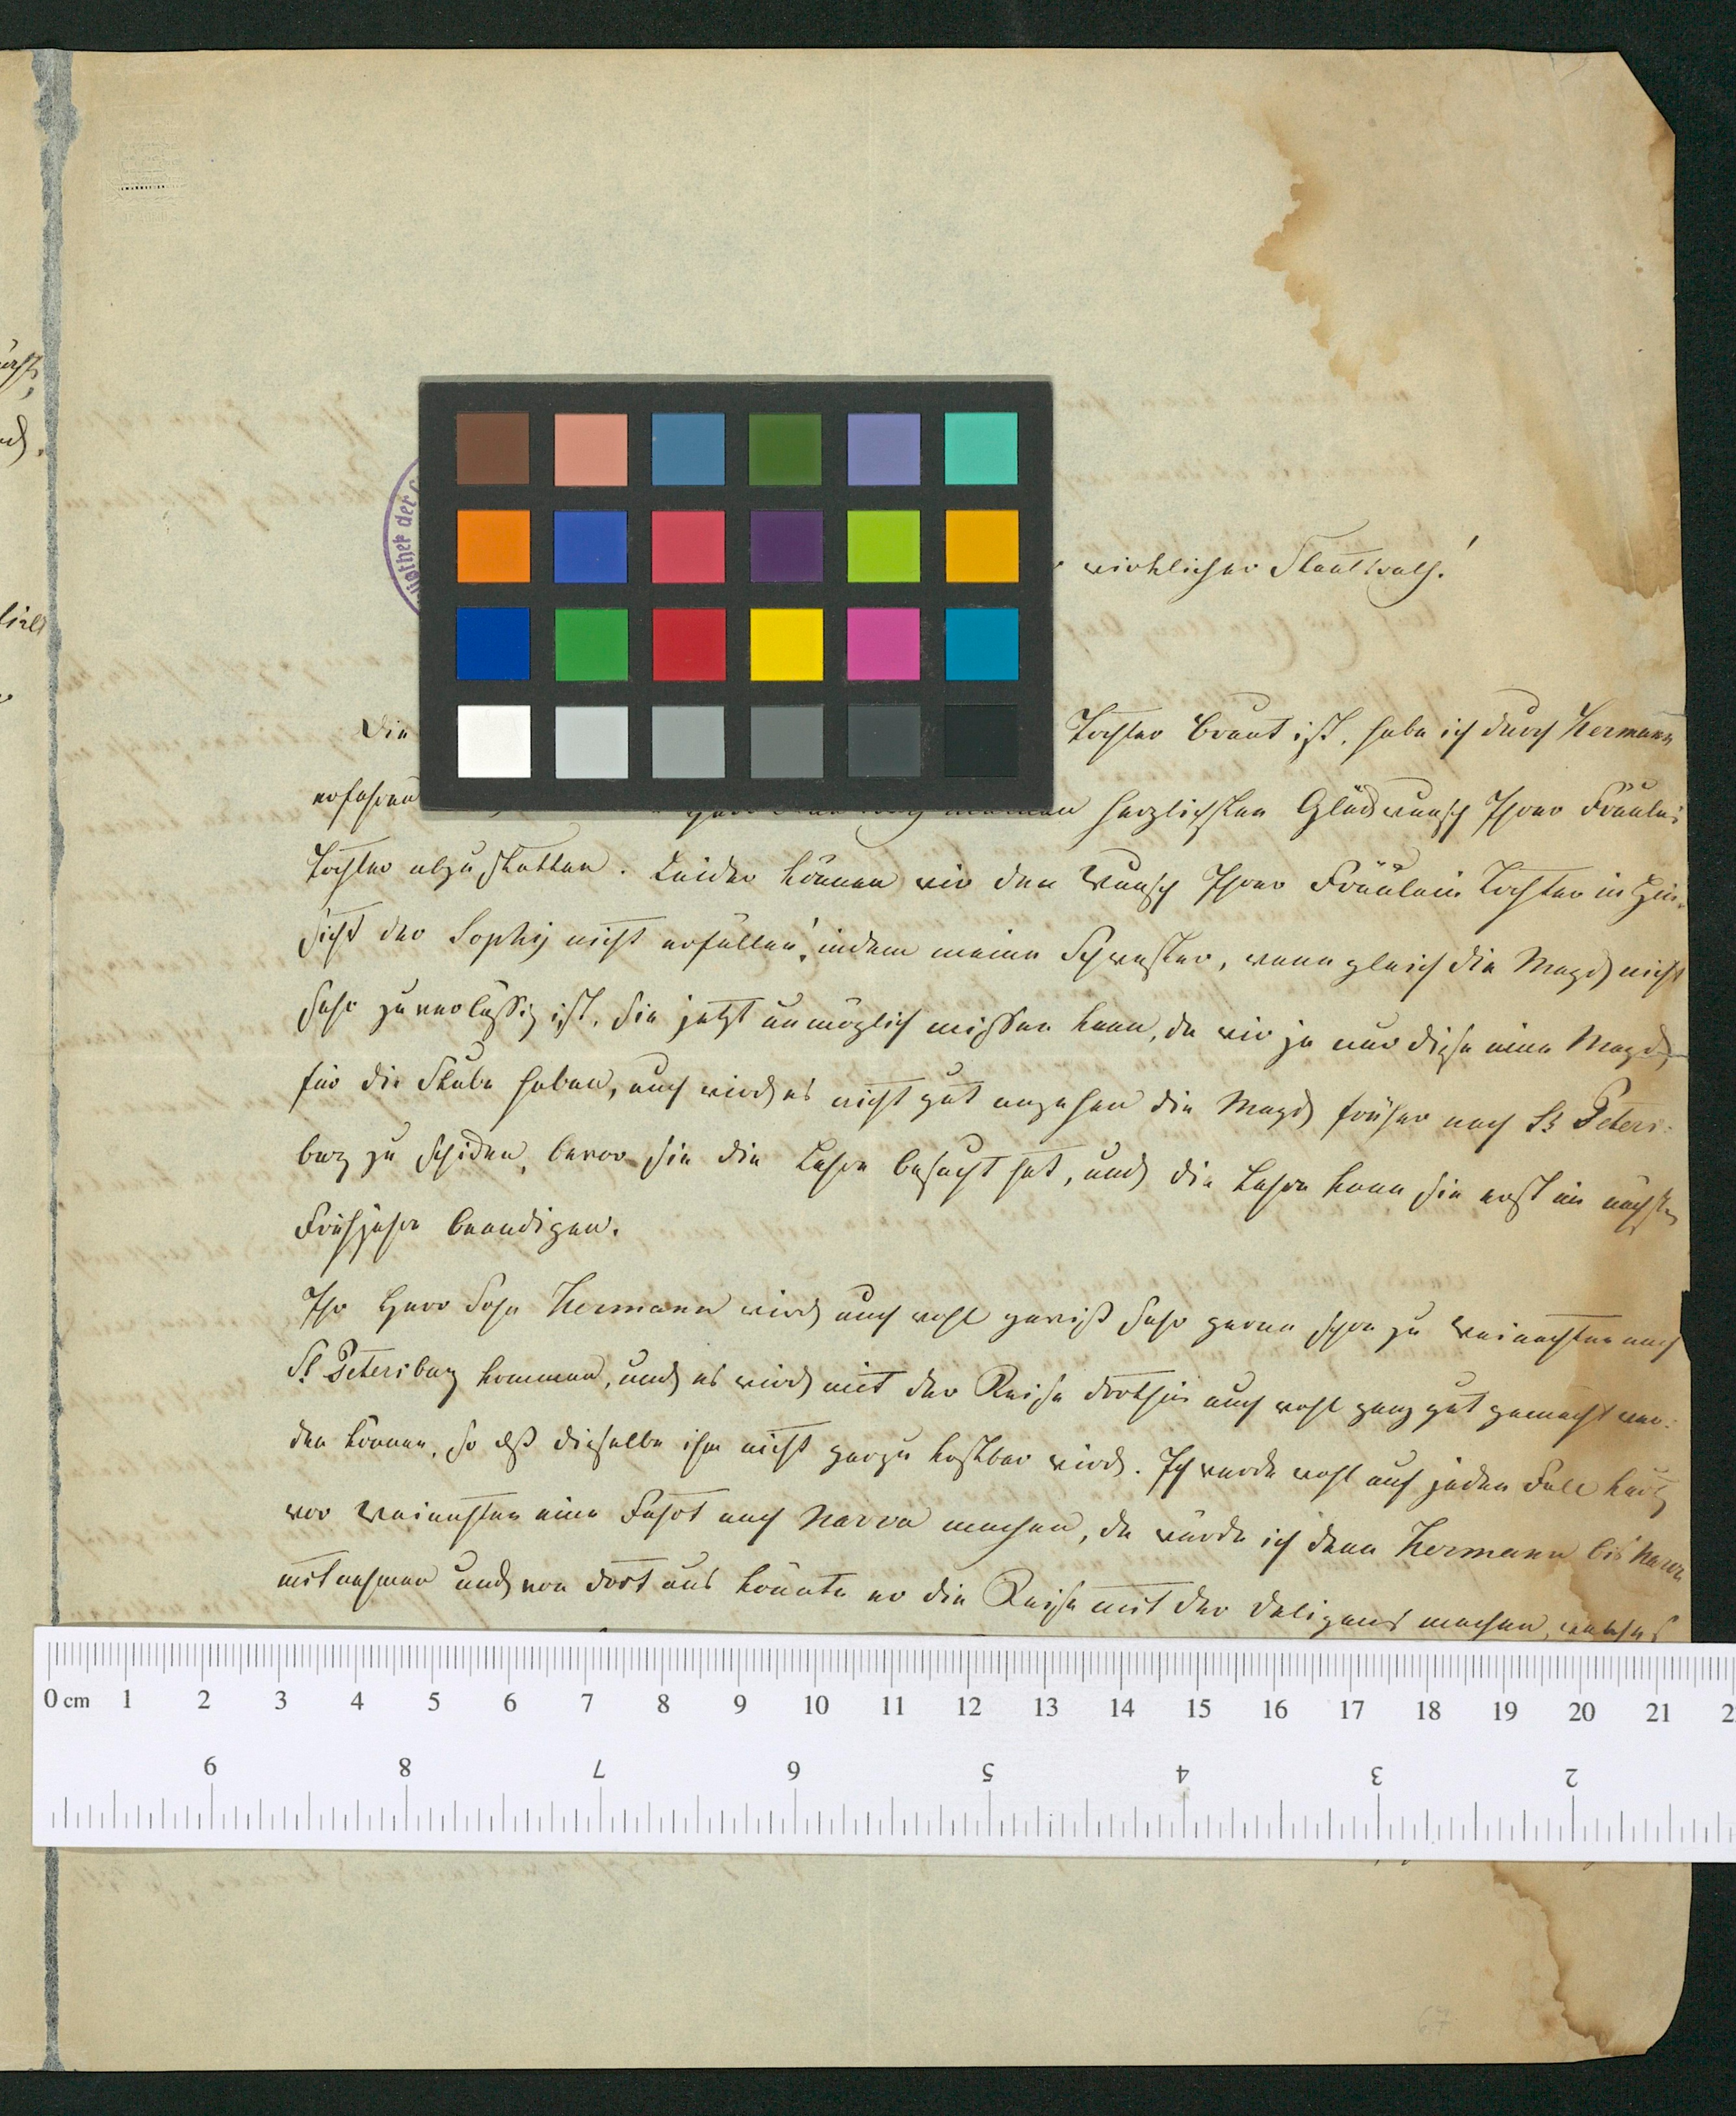 wirklicher Staatsrath!
Die Tochter Braut ist, habe ich durch Hermann
erfahren herzlichsten Glückwunsch Ihrer Fräulein
Tochter abzustatten. Leider können wir den Wunsch Ihrer Fräulein Tochter in Hin-
sicht der Sophy nicht erfüllen, indem meine Schwester, wenn gleich die Magd nicht
sehr zuverläßig ist, sie jetzt unmöglich missen kann, da wir ja nur diese eine Magd
für die Stube haben, auch wird es nicht gut angehen die Magd früher nach St Peters-
burg zu schicken, bevor sie die Lehre besucht hat, und die Lehre kann sie erst im nächsten
Frühjahre beendigen.
Ihr Herr Sohn Hermann wird auch wohl gewiß sehr gerne schon zu Weinachten nach
St Petersburg kommen, und es wird mit der Reise dorthin auch wohl ganz gut gemacht wer-
den können, so daß dieselbe ihm nicht gar zu kostbar wird. Ich werde wohl auf jeden Fall kurz
vor Weinachten eine Fahrt nach Narva machen, da würde ich denn Hermann bis Narva
mitnehmen und von dort aus könnte er die Reise mit der Deligens machen, welches
0 cm 1 2 3 4 5 6 7 8 9 10 11 12 13 14 15 16 17 18 19 20 21 2
9 8 7 6 5 4 3 2
67